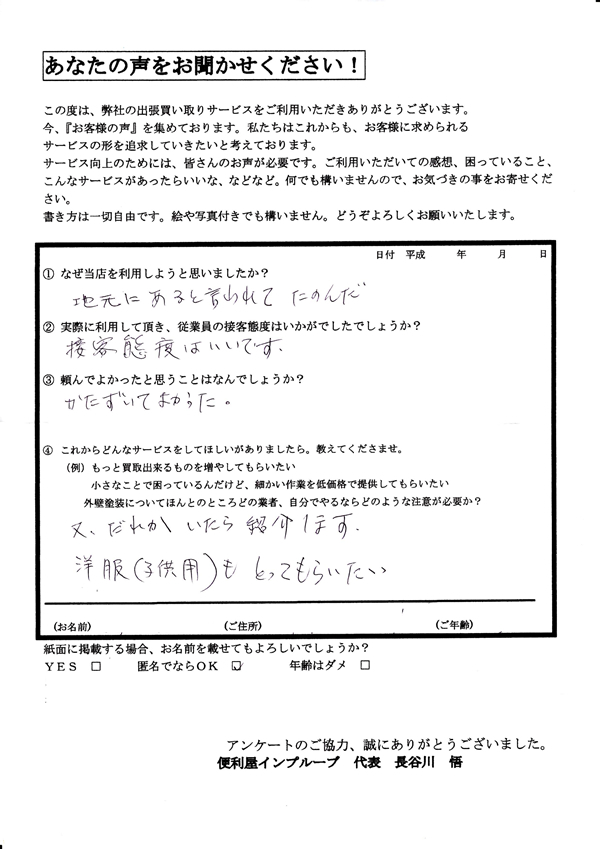 あなたの声をお聞かせください！
この度は、弊社の出張買い取りサービスをご利用いただきありがとうございます。
今、『お客様の声』を集めております。私たちはこれからも、お客様に求められる
サービスの形を追求していきたいと考えております。
サービス向上のためには、皆さんのお声が必要です。ご利用いただいての感想、困っていること、
こんなサービスがあったらいいな、などなど。何でも構いませんので、お気づきの事をお寄せくだ
さい。
書き方は一切自由です。絵や写真付きでも構いません。どうぞよろしくお願いいたします。
日付 平成 年 月 日
① なぜ当店を利用しようと思いましたか？
地元にあると言われてたのんだ
② 実際に利用して頂き、従業員の接客態度はいかがでしたでしょうか？
接客態度はいいです.
③ 頼んでよかったと思うことはなんでしょうか？
かたずいてよかった。
④ これからどんなサービスをしてほしいがありましたら。教えてくださませ。
（例）もっと買取出来るものを増やしてもらいたい
小さなことで困っているんだけど、細かい作業を低価格で提供してもらいたい
外壁塗装についてほんとのところどの業者、自分でやるならどのような注意が必要か？
又、だれかいたら紹介します.
洋服(子供用)もとってもらいたい
（お名前） （ご住所） （ご年齢）
紙面に掲載する場合、お名前を載せてもよろしいでしょうか？
ＹＥＳ □ 匿名でならＯＫ ☑ 年齢はダメ □
アンケートのご協力、誠にありがとうございました。
便利屋インプルーブ 代表 長谷川 悟